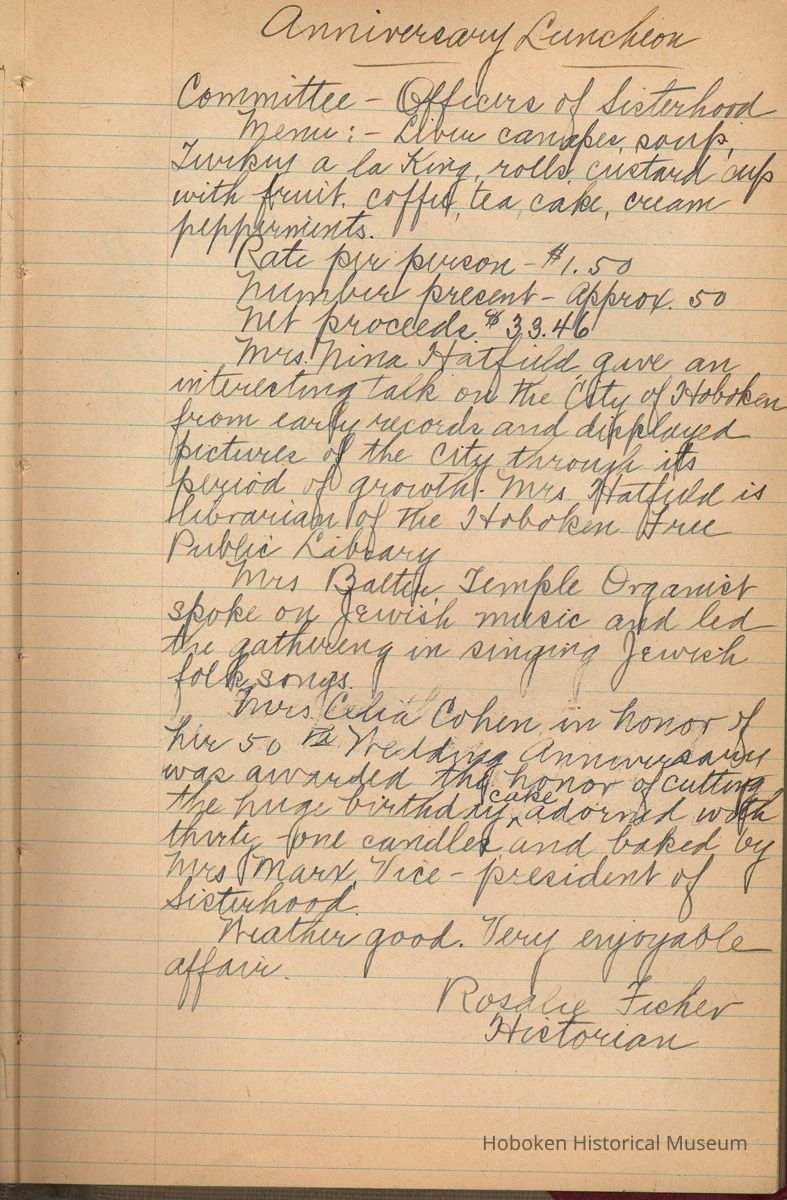 Anniversary Luncheon
Committee - Officers of Sisterhood
Menu:- Liver canapes, soup,
Turkey a la King, rolls, custard cup
with fruit, coffee, tea, cake, cream
peppermints.
Rate per person - $1.50
Number present - Approx. 50
Net proceeds $33.46
Mrs. Nina Hatfield gave an
interesting talk on the City of Hoboken
from early records and displayed
pictures of the City through its
period of growth. Mrs. Hatfield is
librarian of the Hoboken Free
Public Library
Mrs Balter, Temple Organist
spoke on Jewish music and led
the gathering in singing Jewish
folk songs.
Mrs. Celia Cohen in honor of
her 50th Wedding Anniversary
was awarded the honor of cutting
the huge birthday cake adorned with
thirty-one candles and baked by
Mrs Marx, Vice-president of
Sisterhood.
Weather good. Very enjoyable
affair.
Rosalie Ficher
Historian
Hoboken Historical Museum